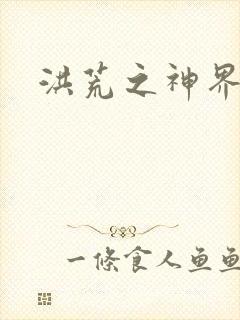 洪荒之神界
一條食人鱼鱼